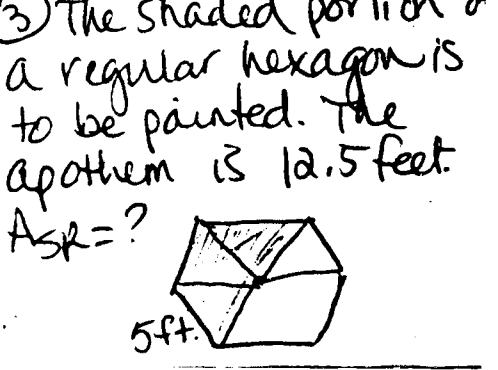 3) The shaded portion
a regular hexagon is
to be painted. The
apothem is 12.5 feet.
A SR = ?
5ft.